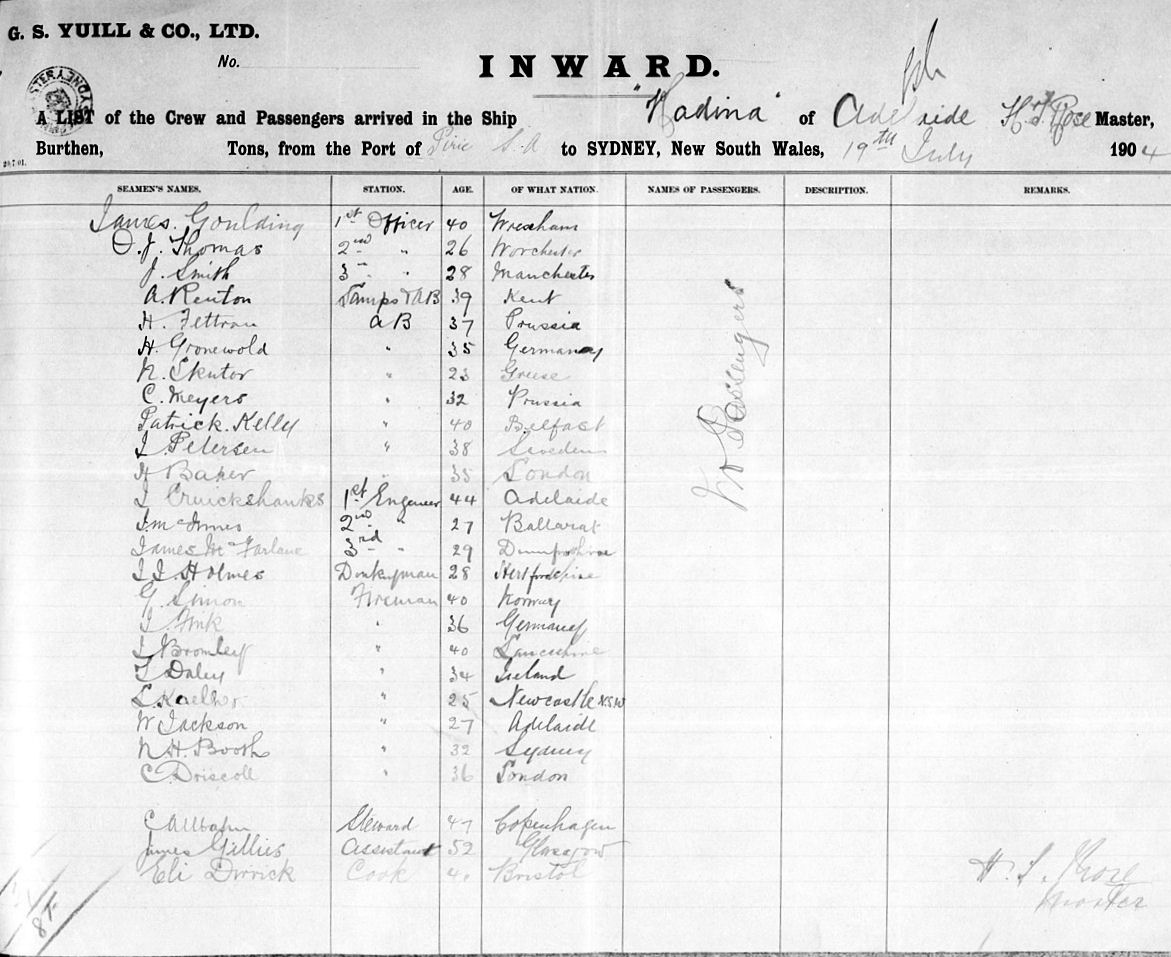 G. S. YUILL & CO., LTD.
No.
INWARD.
A LIST of the Crew and Passengers arrived in the Ship "Kadina" of Adelaide H. S. Rose Master,
Burthen, Tons, from the Port of Pirie S.A to SYDNEY, New South Wales, 19th July 1904
SEAMEN'S NAMES. STATION. AGE. OF WHAT NATION. NAMES OF PASSENGERS. DESCRIPTION. REMARKS.
James. Goulding 1st Officer 40 Wrexham
O. J. Thomas 2nd " 26 Worchester
J. Smith 3rd " 28 Manchester
A. Renton Lamps & AB 39 Kent
H. Fettran AB 37 Prussia
H. Gronewold " 35 Germany
N. Skutor " 23 Greese
C. Meyers " 32 Prussia
Patrick. Kelly " 40 Belfast
J. Petersen " 38 Sweden
H Baker " 35 London
J Cruickshanks 1st Engineer 44 Adelaide
J. McInnes 2nd " 27 Ballarat
James McFarlane 3rd " 29 Dumfrishire
J J Holmes Donkyman 28 Hertfordshire
G. Simon Fireman 40 Norway
J. Fink " 36 Germany
J Bromley " 40
T Daley " 34 Ireland
" 25 Newcastle N.S.W
W Jackson " 27 Adelaide
N H. Booth " 32 Sydney
C Driscoll " 36 London
C Steward 47 Copenhagen
James Gillies Assistant 52 Glasgow
Eli Derrick Cook 4 Bristol
No Passengers
H. S. Rose
Master